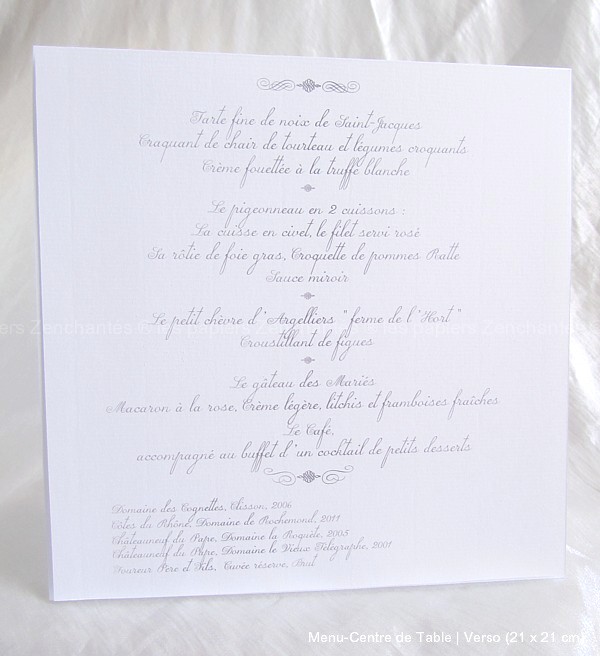 Tarte fine de noix de Saint-Jacques
Craquant de chair de tourteau et légumes croquants
Crème fouettée à la truffe blanche
Le pigeonneau en 2 cuissons :
La cuisse en civet, le filet servi rosé
Sa rôtie de foie gras, Croquette de pommes Ratte
Sauce miroir
Le petit chèvre d'Argelliers " ferme de l'Hort "
Croustillant de figues
Le gâteau des Mariés
Macaron à la rose, Crème légère, litchis et framboises fraîches
Le Café,
accompagné au buffet d'un cocktail de petits desserts
Domaine des Cognettes, Clisson, 2006
Côtes du Rhône, Domaine de Rochemond, 2011
Châteauneuf du Pape, Domaine la Roquète, 2005
Châteauneuf du Pape, Domaine le Vieux Télégraphe, 2001
Père et Fils, Cuvée réserve, Brut
Menu-Centre de Table | Verso (21 x 21 cm)